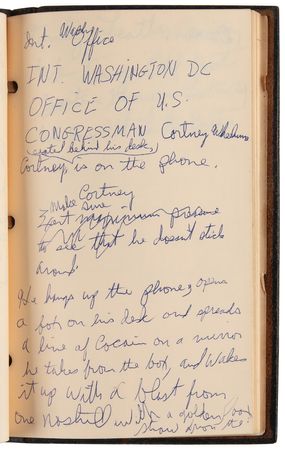 Int. Wash
Office
INT. WASHINGTON DC
OFFICE OF U.S.
CONGRESSMAN Cortney
(seated behind his desk,)
Cortney, is on the phone.
Cortney
Make sure
put maximum pressure
to see that he doesn't stick
around
He hangs up the phone & opens
a box on his desk and spreads
a line of Cocain on a mirror
he takes from the box, and Wakes
it up with a blast from
one nostrill with a golden
straw